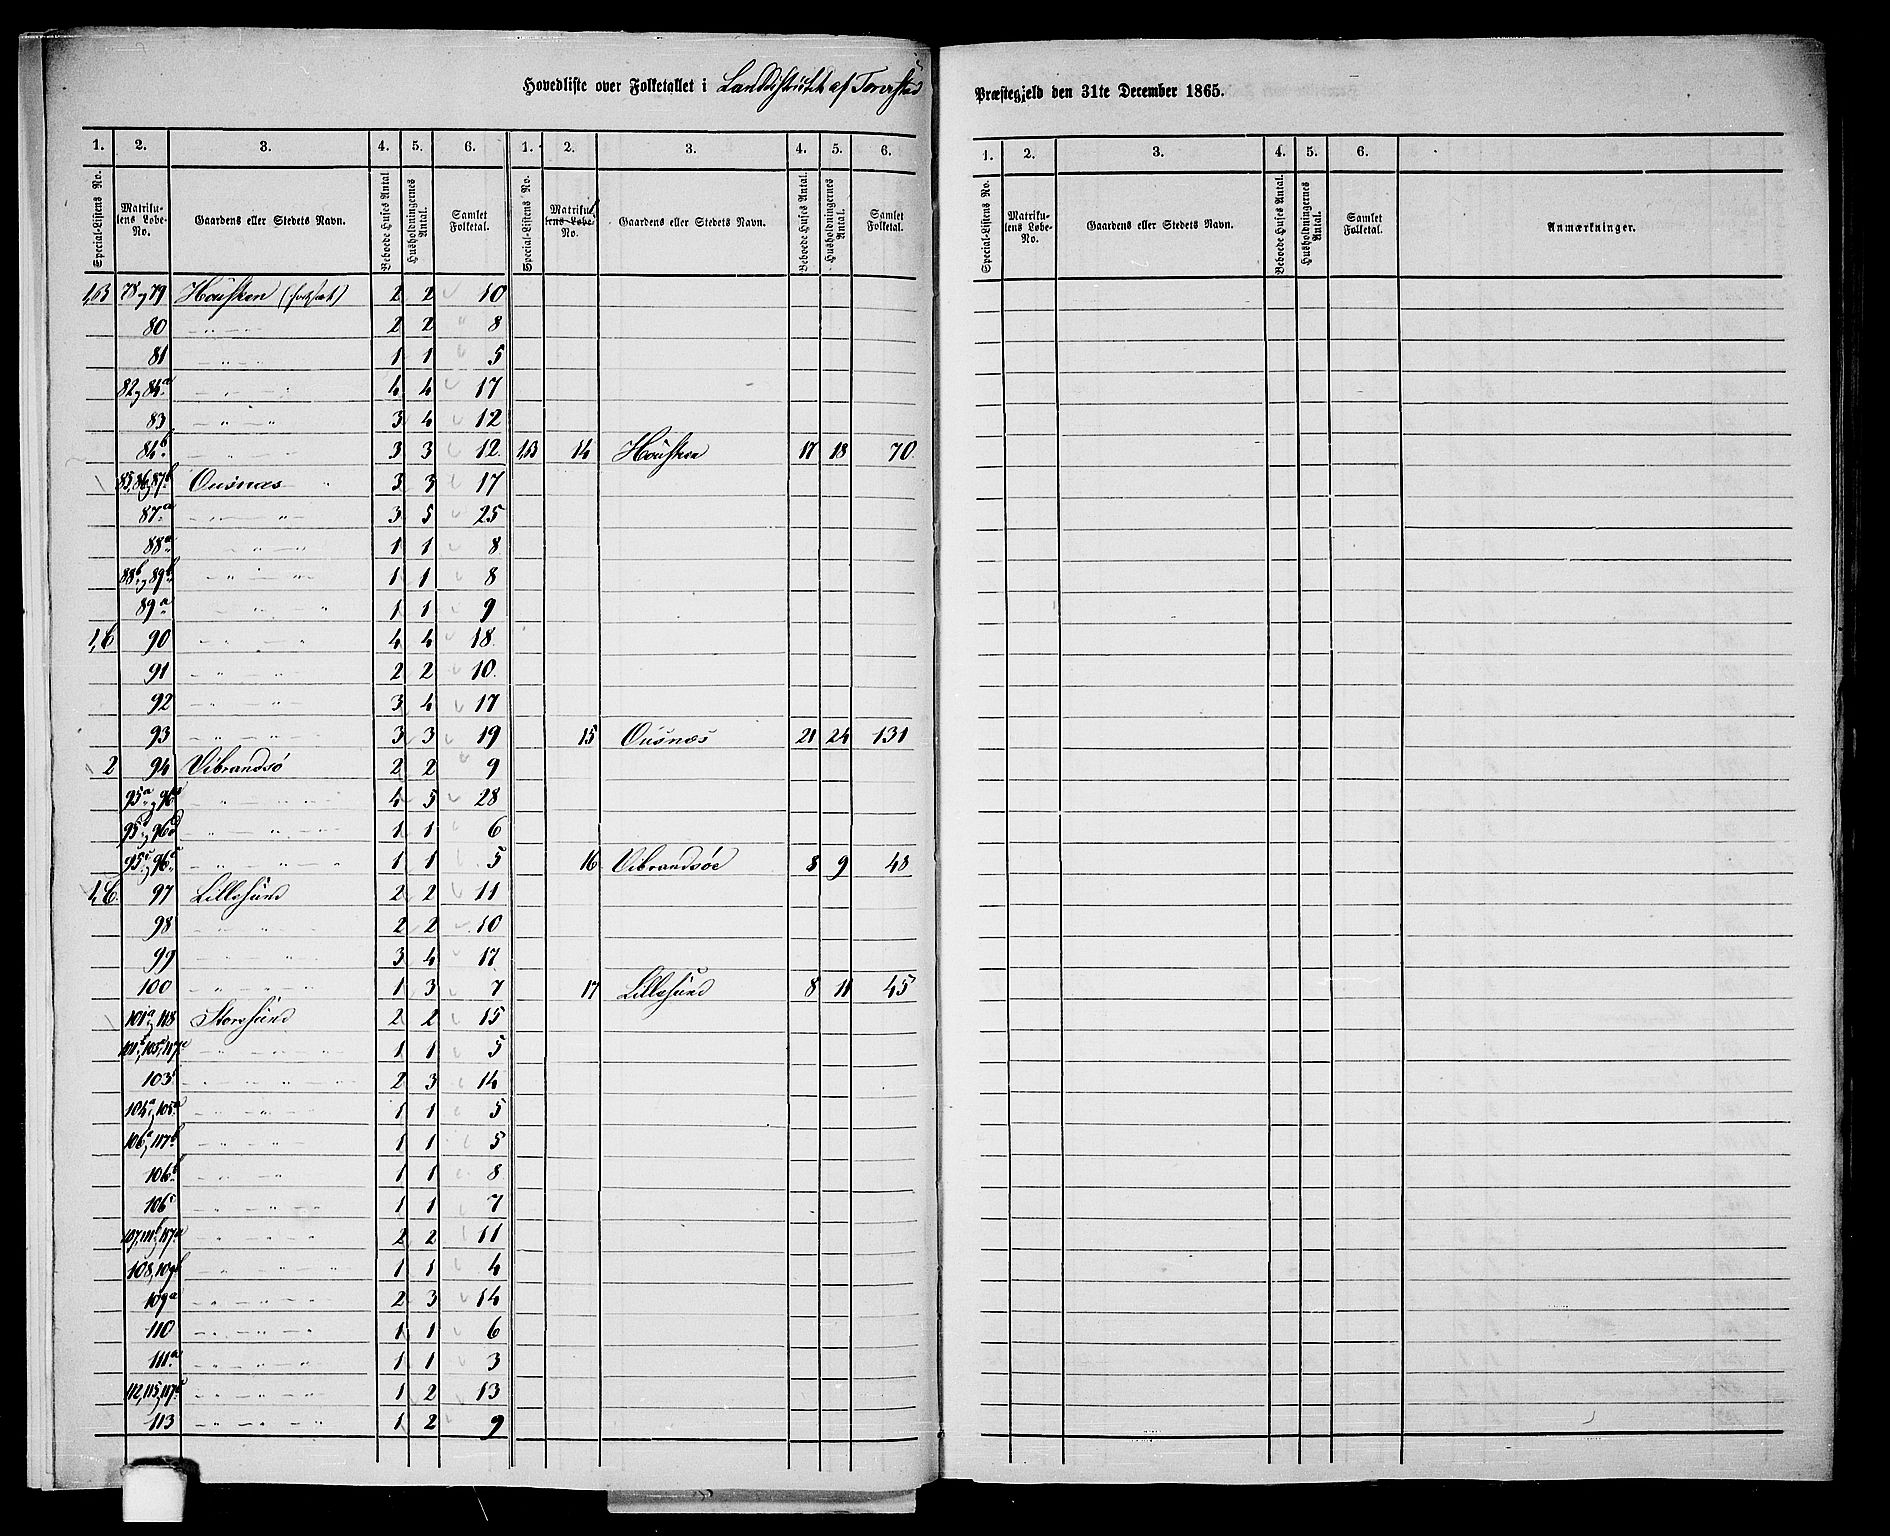 Hovedliste over Folketallet i Landdistriktet af Torvestad Præstegjeld den 31te December 1865.
1. 2. 3. 4. 5. 6. 1. 2. 3. 4. 5. 6. 1. 2. 3. 4. 5. 6.
Special-Listens No. Matrikulens Løbe-No. Gaardens eller Stedets Navn. Beboede Huses Antal. Husholdningernes Antal. Samlet Folketal. Special-Listens No. Matrikulens Løbe-No. Gaardens eller Stedets Navn. Beboede Huses Antal. Husholdningernes Antal. Samlet Folketal. Special-Listens No. Matrikulens Løbe-No. Gaardens eller Stedets Navn. Beboede Huses Antal. Husholdningernes Antal. Samlet Folketal. Anmærkninger.
1,B 78 og 79 Housken (fortsat) 2 2 10
80 — „ — 2 2 8
81 — „ — 1 1 5
82 og 84a — „ — 4 4 17
83 — „ — „ 3 4 12
84b — „ — 3 3 12 1,B 14 Housken 17 18 70
85, 86 og 87b Ousnæs 3 3 17
87a — „ — „ 3 5 25
88a — „ — „ 1 1 8
88b og 89b — „ — „ 1 1 8
89a — „ — „ 1 1 9
1,C 90 — „ — „ 4 4 18
91 — „ — „ 2 2 10
92 — „ — „ 3 4 17
93 — „ — „ 3 3 19 15 Ousnæs 21 24 131
2 94 Vibrandsø 2 2 9
95a og 96 — „ — „ 4 5 28
95 og 96d — „ — „ 1 1 6
95c og 96c — „ — „ 1 1 5 16 Vibrandsøe 8 9 48
1,C. 97 Lillesund 2 2 11
98 — „ — „ 2 2 10
99 — „ — „ 3 4 17
100 — „ — „ 1 3 7 17 Lillesund 8 11 45
101a og 118 Storesund 2 2 15
101b, 105, 117c — „ — „ 1 1 5
103 — „ — „ 2 3 14
104a og 105a — „ — „ 1 1 5
106a og 117b — „ — „ 1 1 5
106b — „ — „ 1 1 8
106c — „ — „ 1 1 7
107, 111b og 117a — „ — „ 2 2 11
108, 109b — „ — „ 1 1 4
109a — „ — „ 2 3 14
110 — „ — „ 1 1 6
111a — „ — „ 1 1 3
112, 115, 117 — „ — „ 1 2 13
113 — „ — „ 1 2 9